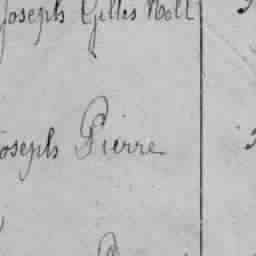 Joseph Gilles Noël
Joseph Pierre